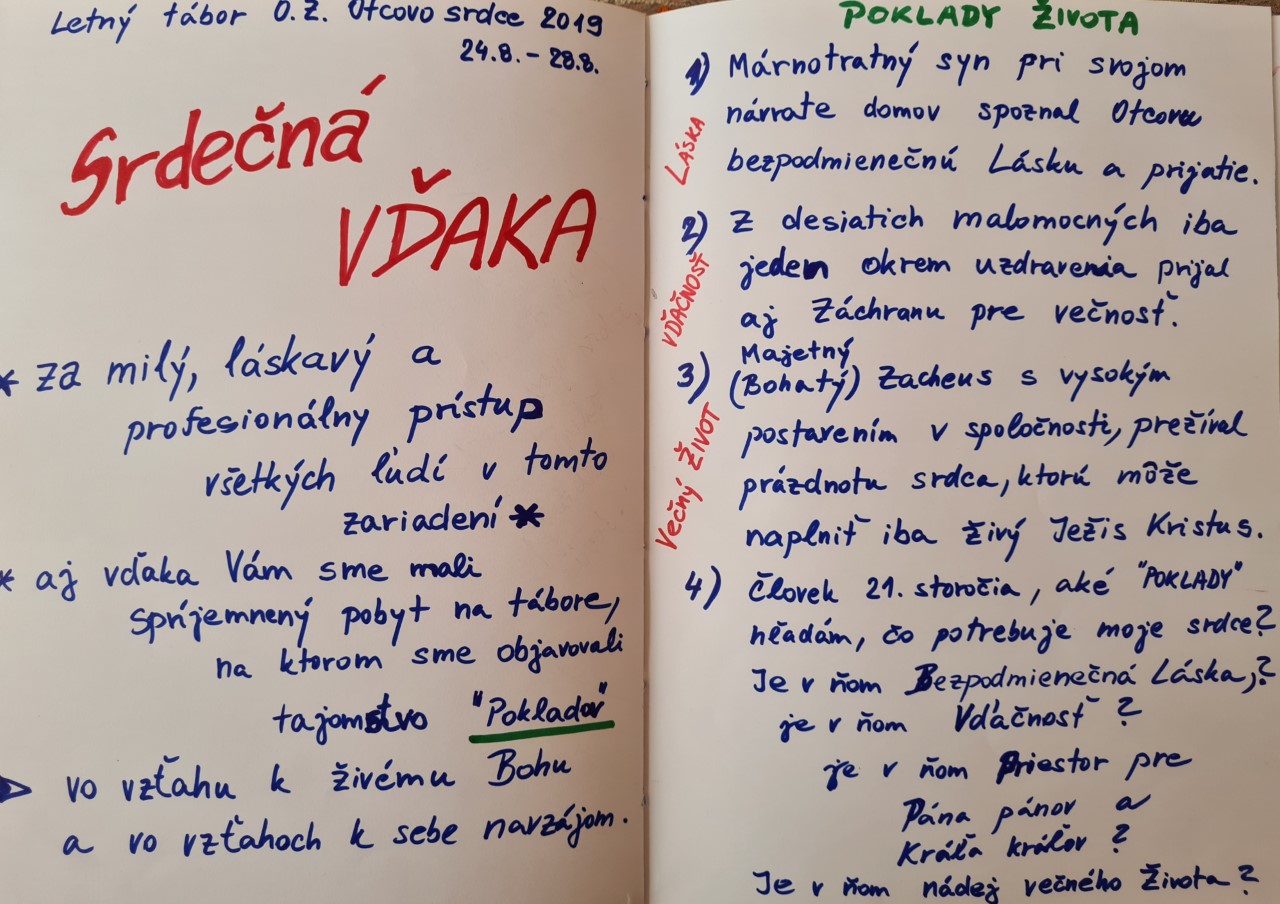 Letný tábor O.Z. Otcovo srdce 2019
24.8. - 28.8.
Srdečná
VĎAKA
* za milý, láskavý a
profesionálny prístup
všetkých ľudí v tomto
zariadení *
* aj vďaka Vám sme mali
spríjemnený pobyt na tábore,
na ktorom sme objavovali
tajomstvo "Pokladov"
vo vzťahu k živému Bohu
a vo vzťahoch k sebe navzájom.
POKLADY ŽIVOTA
1) Márnotratný syn pri svojom
návrate domov spoznal Otcovu
bezpodmienečnú Lásku a prijatie.
LÁSKA
2) Z desiatich malomocných iba
jeden okrem uzdravenia prijal
aj Záchranu pre večnosť.
VĎAČNOSŤ
Majetný
3) (Bohatý) Zacheus s vysokým
postavením v spoločnosti, prežíval
prázdnotu srdca, ktorú môže
naplniť iba živý Ježis Kristus.
Večný ŽIVOT
4) Človek 21. storočia, aké "POKLADY"
hľadám, čo potrebuje moje srdce?
Je v ňom Bezpodmienečná Láska,?
je v ňom Vďáčnosť?
je v ňom Priestor pre
Pána pánov a
Kráľa kráľov?
Je v ňom nádej večného Života?